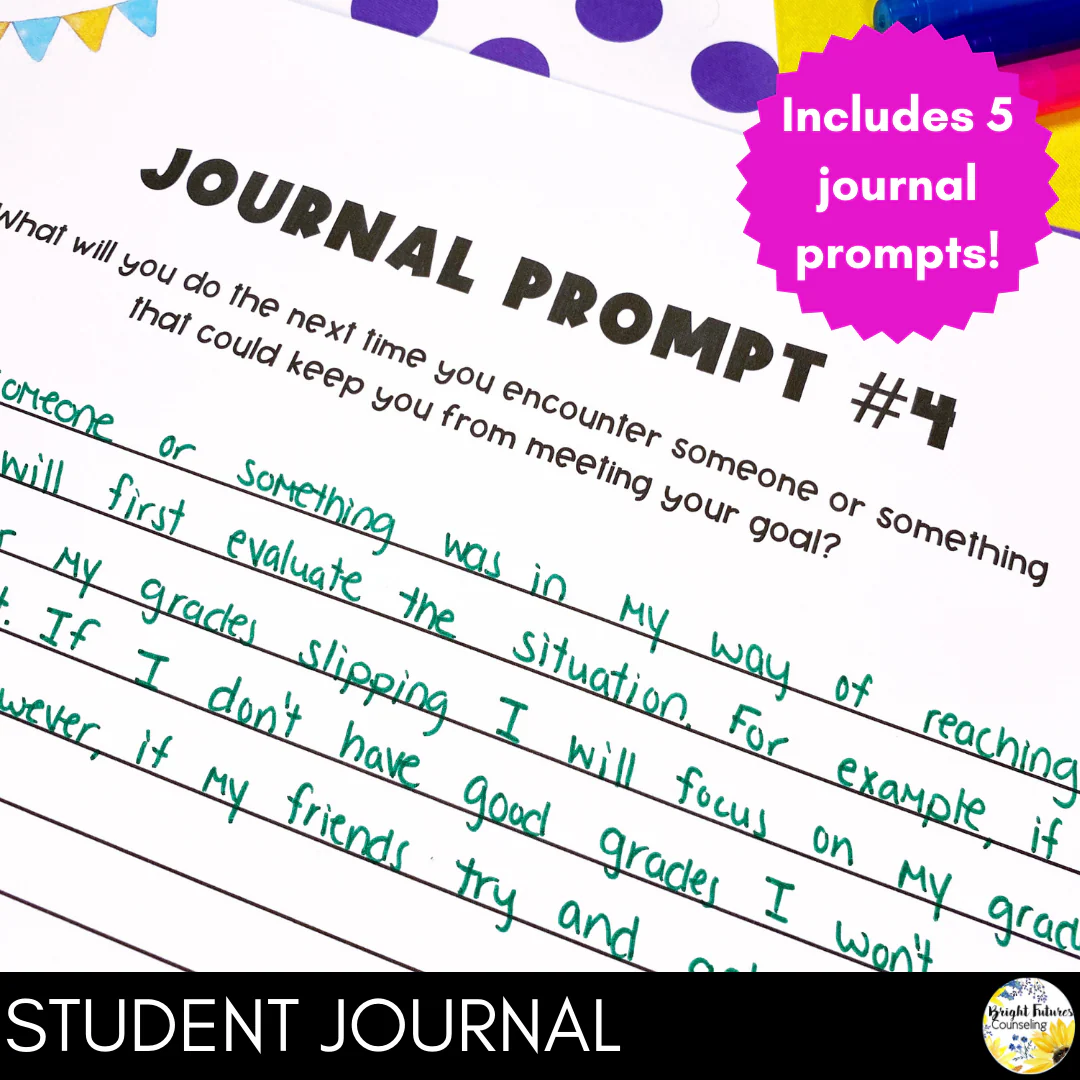 Includes 5
journal
prompts!
JOURNAL PROMPT #4
What will you do the next time you encounter someone or something
that could keep you from meeting your goal?
someone or something was in my way of reaching
will first evaluate the situation. For example, if
my grades slipping I will focus on my
If I don't have good grades I won't
if my friends try and
STUDENT JOURNAL
Bright Futures
Counseling